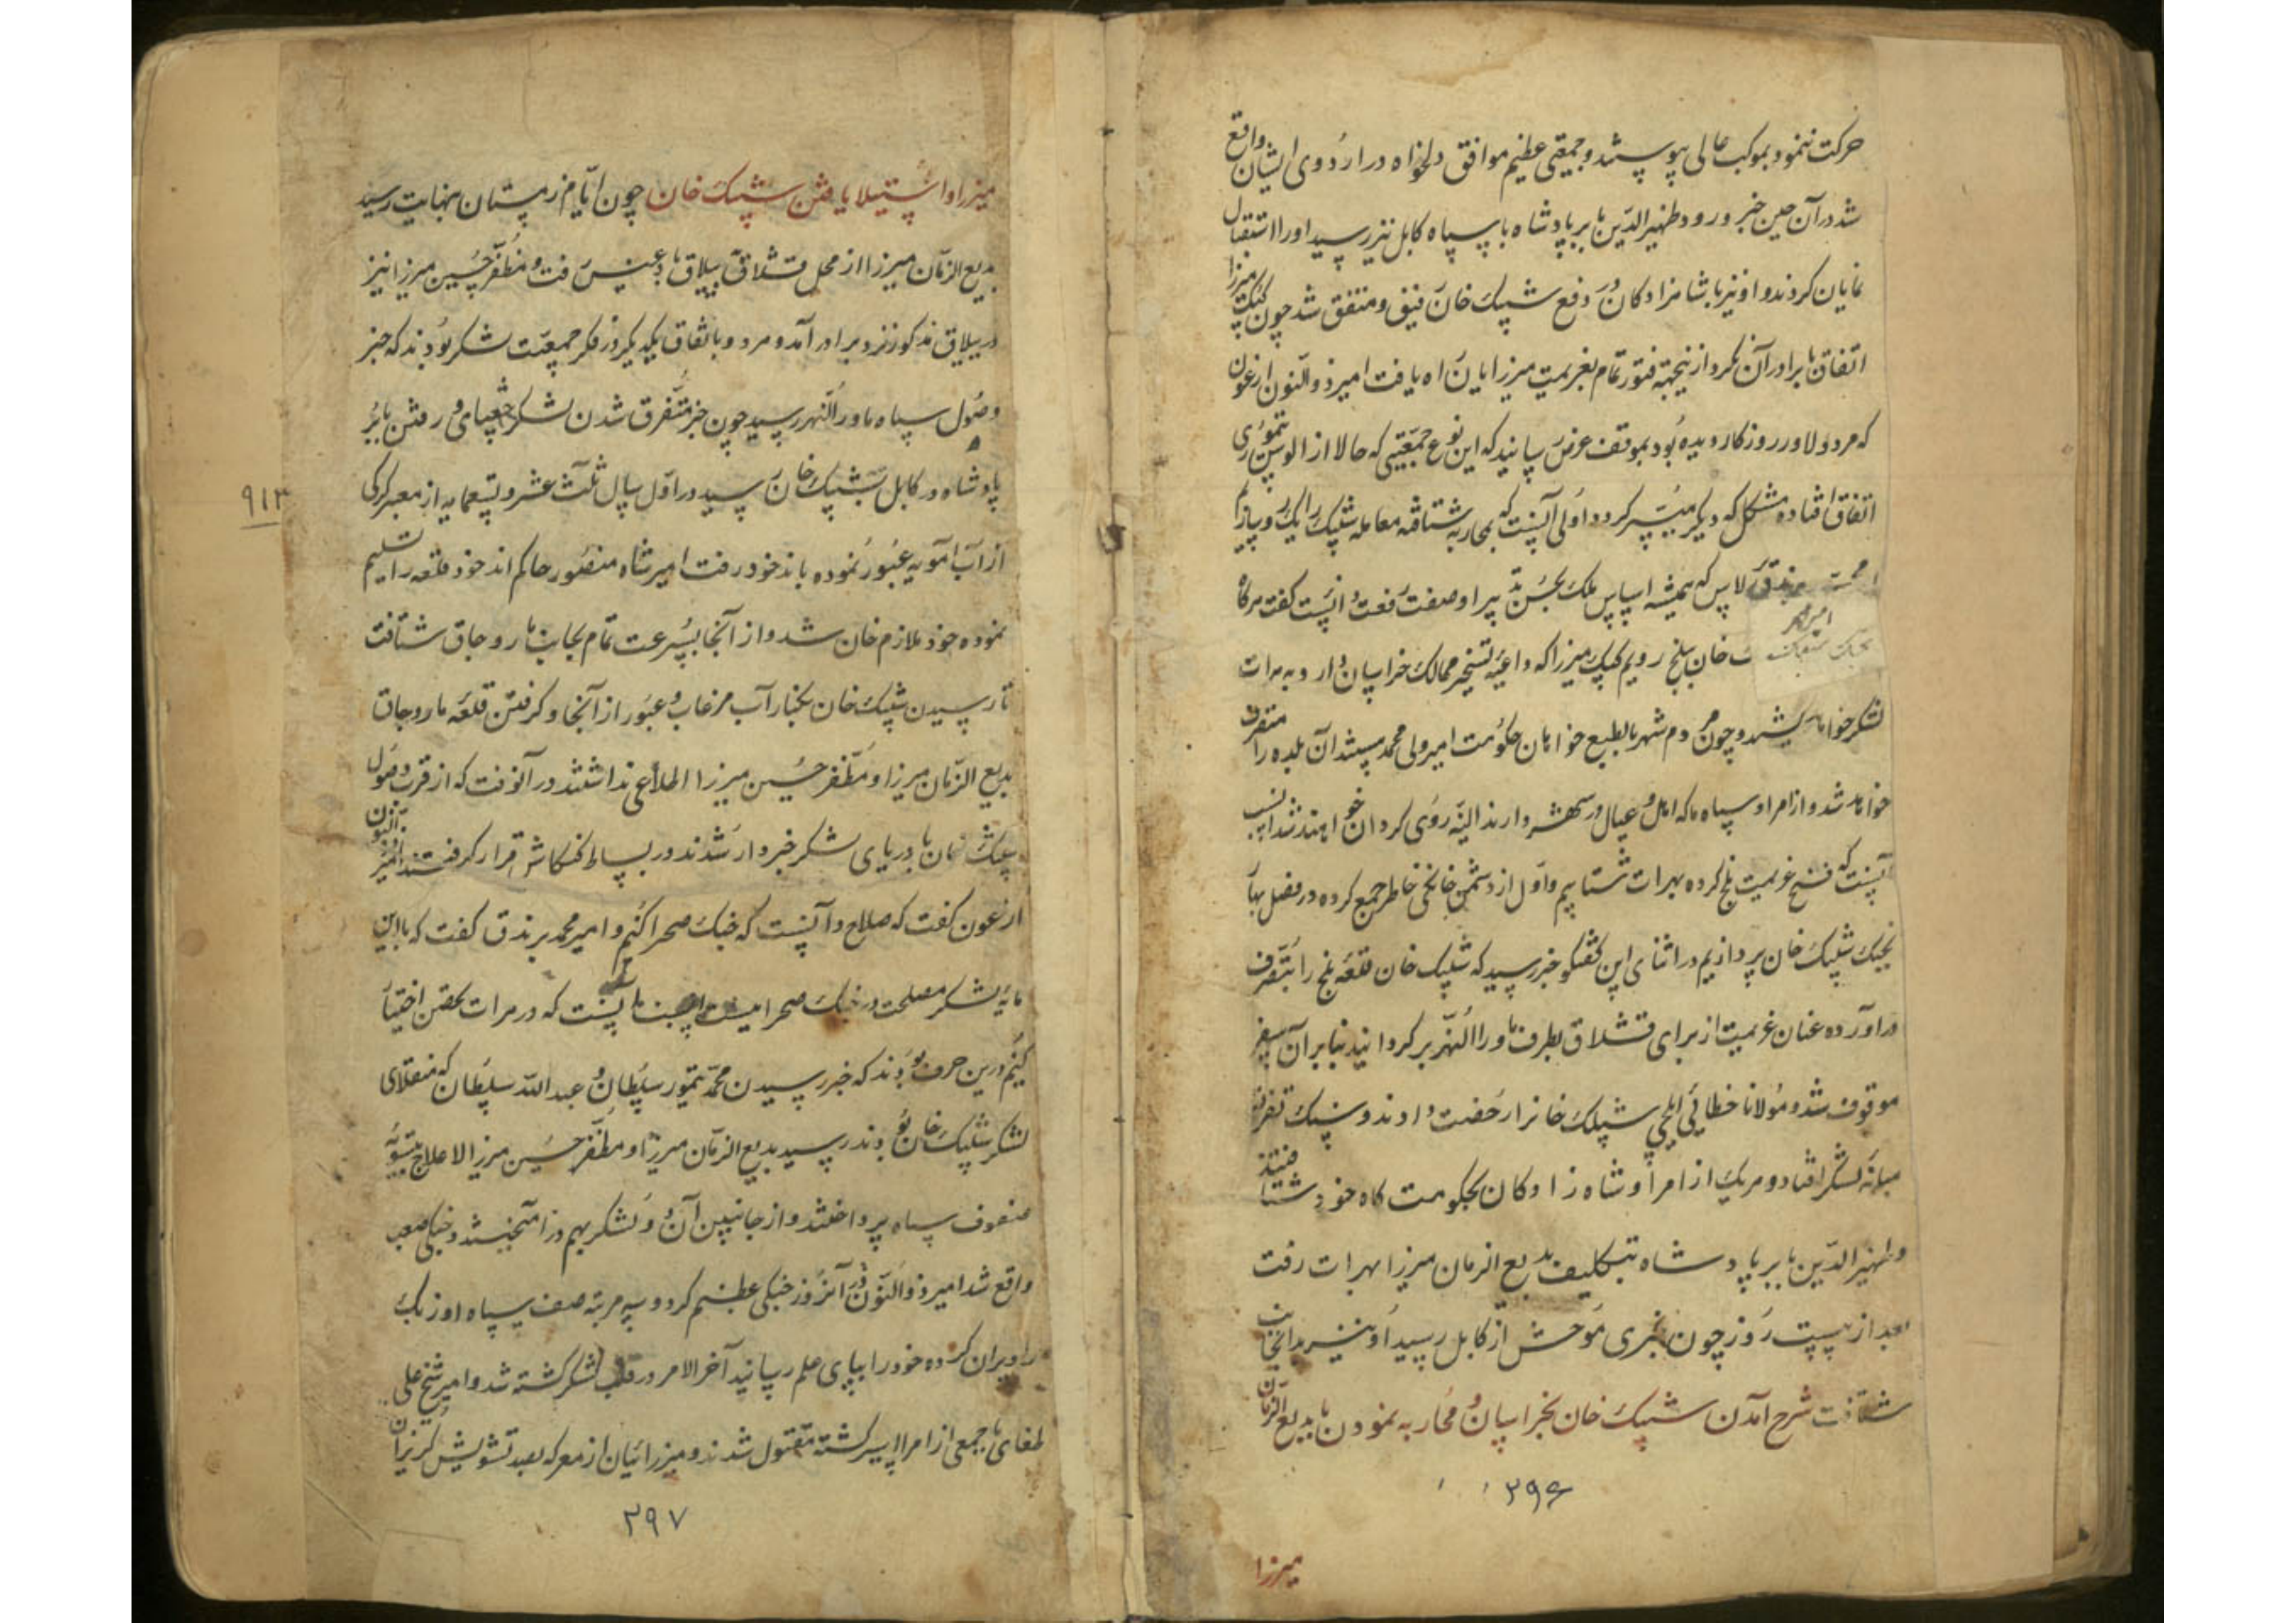 حرکت ننمود بموکب عالی پیوستند و جمعیتی عظیم موافق دلخواه در اردوی ایشان واقع
شد در آن حین خبر ورود ظهیرالدین بابر پادشاه با سپاه کابل نیز رسید او را استقبال
نمایان کردند و او نیز با شاهزادکان در دفع شیبک خان متفق شد چون کپک میرزا
اتفاق با برادران نکرد ازینجهته فتور تمام بعزیمت میرزایان راه یافت امیر ذوالنون ارغون
که مرد دلاور روزکار دیده بود بموقف عرض رسانید که این نوع جمعیتی که حالا از الوس تیموری
اتفاق افتاده مشکل که دیکر میسر کردد اولی آنست که بمحاربه شتافته معامله شیبک را یکرو سازیم
برندق برلاس که همیشه اساس ملک بحسن تدبیر او صفت رفعت داشت کفت هرکاه
امیر محمد
خان ببلخ رویم کپک میرزا که داعیه تسخیر ممالک خراسان دارد به هرات
لشکر خواهد کشید و چون مردم شهر بالطبع خواهان حکومت امیر ولی محمد هستند آن بلده را متصرف
خواهد شد و از امرا و سپاه ما که اهل و عیال در شهر دارند البته روی کردان خواهند شد انسب
آنست که فسخ عزیمت بلخ کرده بهرات شتابیم و اول از دشمن خانکی خاطر جمع کرده در فصل بهار
بجنک شیبک خان پردازیم در اثنای این کفتکو خبر رسید که شیبک خان قلعه بلخ را بتصرف
در آورده عنان عزیمت از برای قشلاق بطرف ماوراالنهر برکردانید بنابر آن سفر
موقوف شد و مولانا خطائی ایلچی شیبک خانرا رخصت دادند و سنک تفرقه
میانه لشکر افتاد و هریک از امرا و شاه زادکان بحکومت کاه خود شتافتند
و ظهیرالدین بابر پادشاه بتکلیف بدیع الزمان میرزا بهرات رفت
بعد از بیست روز چون خبری موحش از کابل رسید او نیز بدانجانب
شتافت شرح آمدن شیبک خان بخراسان و محاربه نمودن با بدیع الزمان
۲۹۶
میرزا
میرزا و استیلا یافتن شیبک خان چون ایام زمستان بنهایت رسید
بدیع الزمان میرزا از محل قشلاق به ییلاق بادغیس رفت و مظفر حسین میرزا نیز
در ییلاق مذکور نزد برادر آمد و هردو باتفاق یکدیکر در فکر جمعیت لشکر بودند که خبر
وصول سپاه ماوراالنهر رسید چون خبر متفرق شدن لشکر جغتای و رفتن بابر
پادشاه در کابل بشیبک خان رسید در اول سال ثلث عشر و تسعمایه از معبر کرکی
۹۱۳
از آب آمویه عبور نموده باندخود رفت امیر شاه منصور حاکم اندخود قلعه را تسلیم
نموده خود ملازم خان شد و از آنجا بسرعت تمام بجانب ماروچاق شتافت
تا رسیدن شیبک خان بکنار آب مرغاب و عبور از آنجا و کرفتن قلعه ماروچاق
بدیع الزمان میرزا و مظفر حسین میرزا اطلاعی نداشتند در آنوقت که از قرب وصول
شیبک خان با دریای لشکر خبردار شدند در بساط کنکاش قرار کرفتند امیر ذوالنون
ارغون کفت که صلاح در آنست که جنک صحرا کنیم و امیر محمد برندق کفت که با این
مایه لشکر مصلحت در جنک صحرا نیست مناسب آنست که در هرات تحصن اختیار
کنیم درین حرف بودند که خبر رسیدن محمد تیمور سلطان و عبدالله سلطان که منقلای
لشکر شیبک خان بودند رسید بدیع الزمان میرزا و مظفر حسین میرزا لاعلاج بتسویه
صفوف سپاه پرداختند و از جانبین آن دو لشکر بهم در آمیختند و جنکی صعب
واقع شد امیر ذوالنون در آنروز جنکی عظیم کرد و سه مرتبه صف سپاه اوزبک
را ویران کرده خود را بپای علم رسانید آخرالامر در قلب لشکر کشته شد و امیر شیخ علی
طغای با جمعی از امرا اسیر کشته مقتول شدند و میرزائیان از معرکه بصد تشویش کریزان
۲۹۷